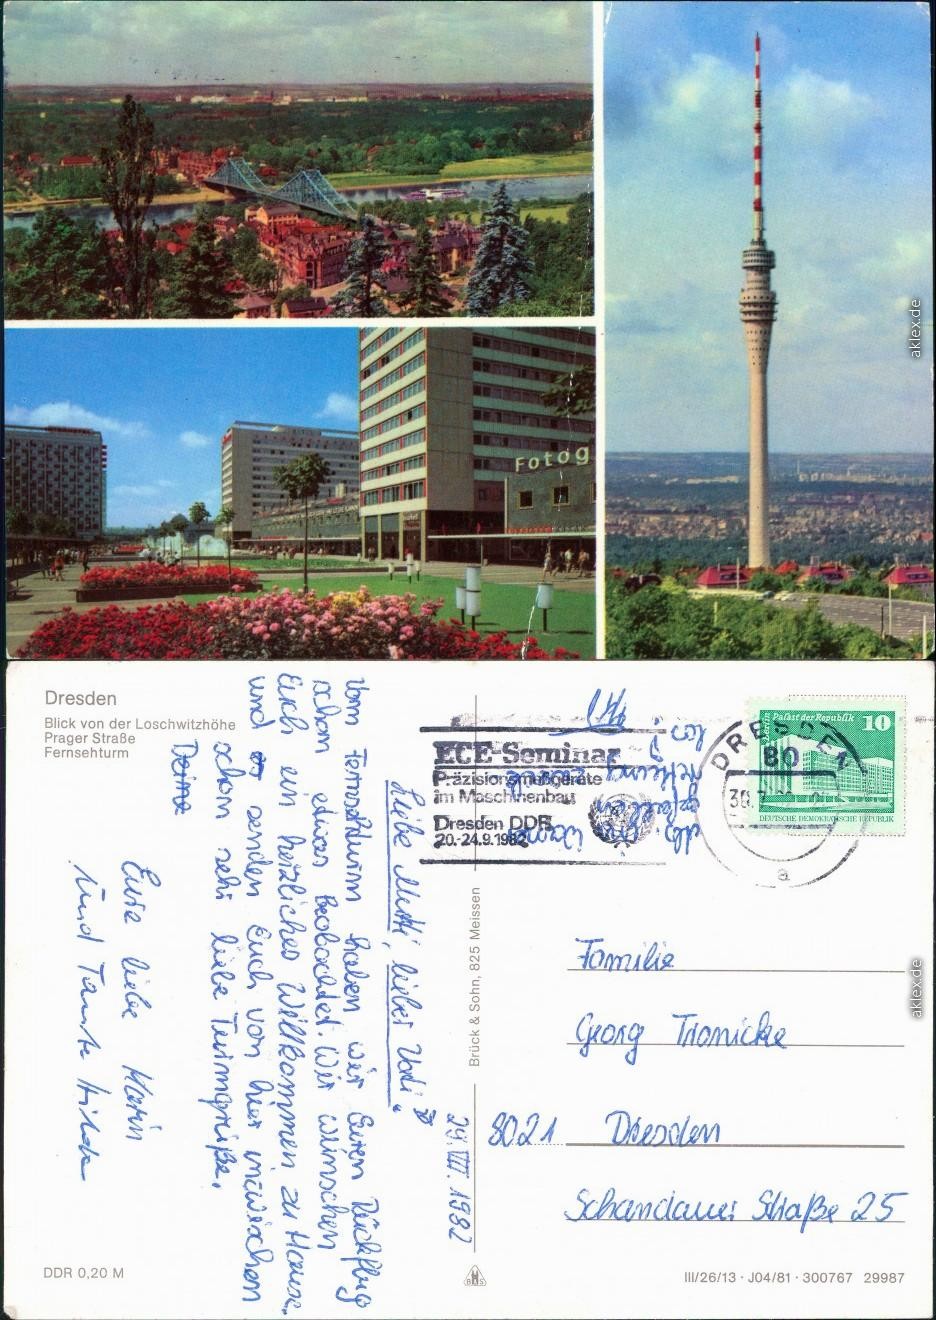 Fotog
aklex.de
Dresden
Blick von der Loschwitzhöhe
Prager Straße
Fernsehturm
29. VII. 1982
Liebe Mutti, lieber Vati!
Vom Fernsehturm haben wir Euren Rückflug
schon etwas beobachtet. Wir wünschen
Euch ein herzliches Willkommen zu Hause.
und senden Euch von hier inzwischen
schon sehr liebe Turmgrüße.
Deine
Eure liebe Karin
und Tante Hilde
ECE-Seminar
Präzisionsmeßgeräte
im Maschinenbau
Dresden DDR
20.-24.9.1982
DRESDEN 1
80
a
Berlin Palast der Republik 10
DEUTSCHE DEMOKRATISCHE REPUBLIK
Brück & Sohn, 825 Meissen
Familie
Georg Tronicke
8021 Dresden
Schandauer Straße 25
aklex.de
DDR 0,20 M
III/26/13 · J04/81 · 300767 29987